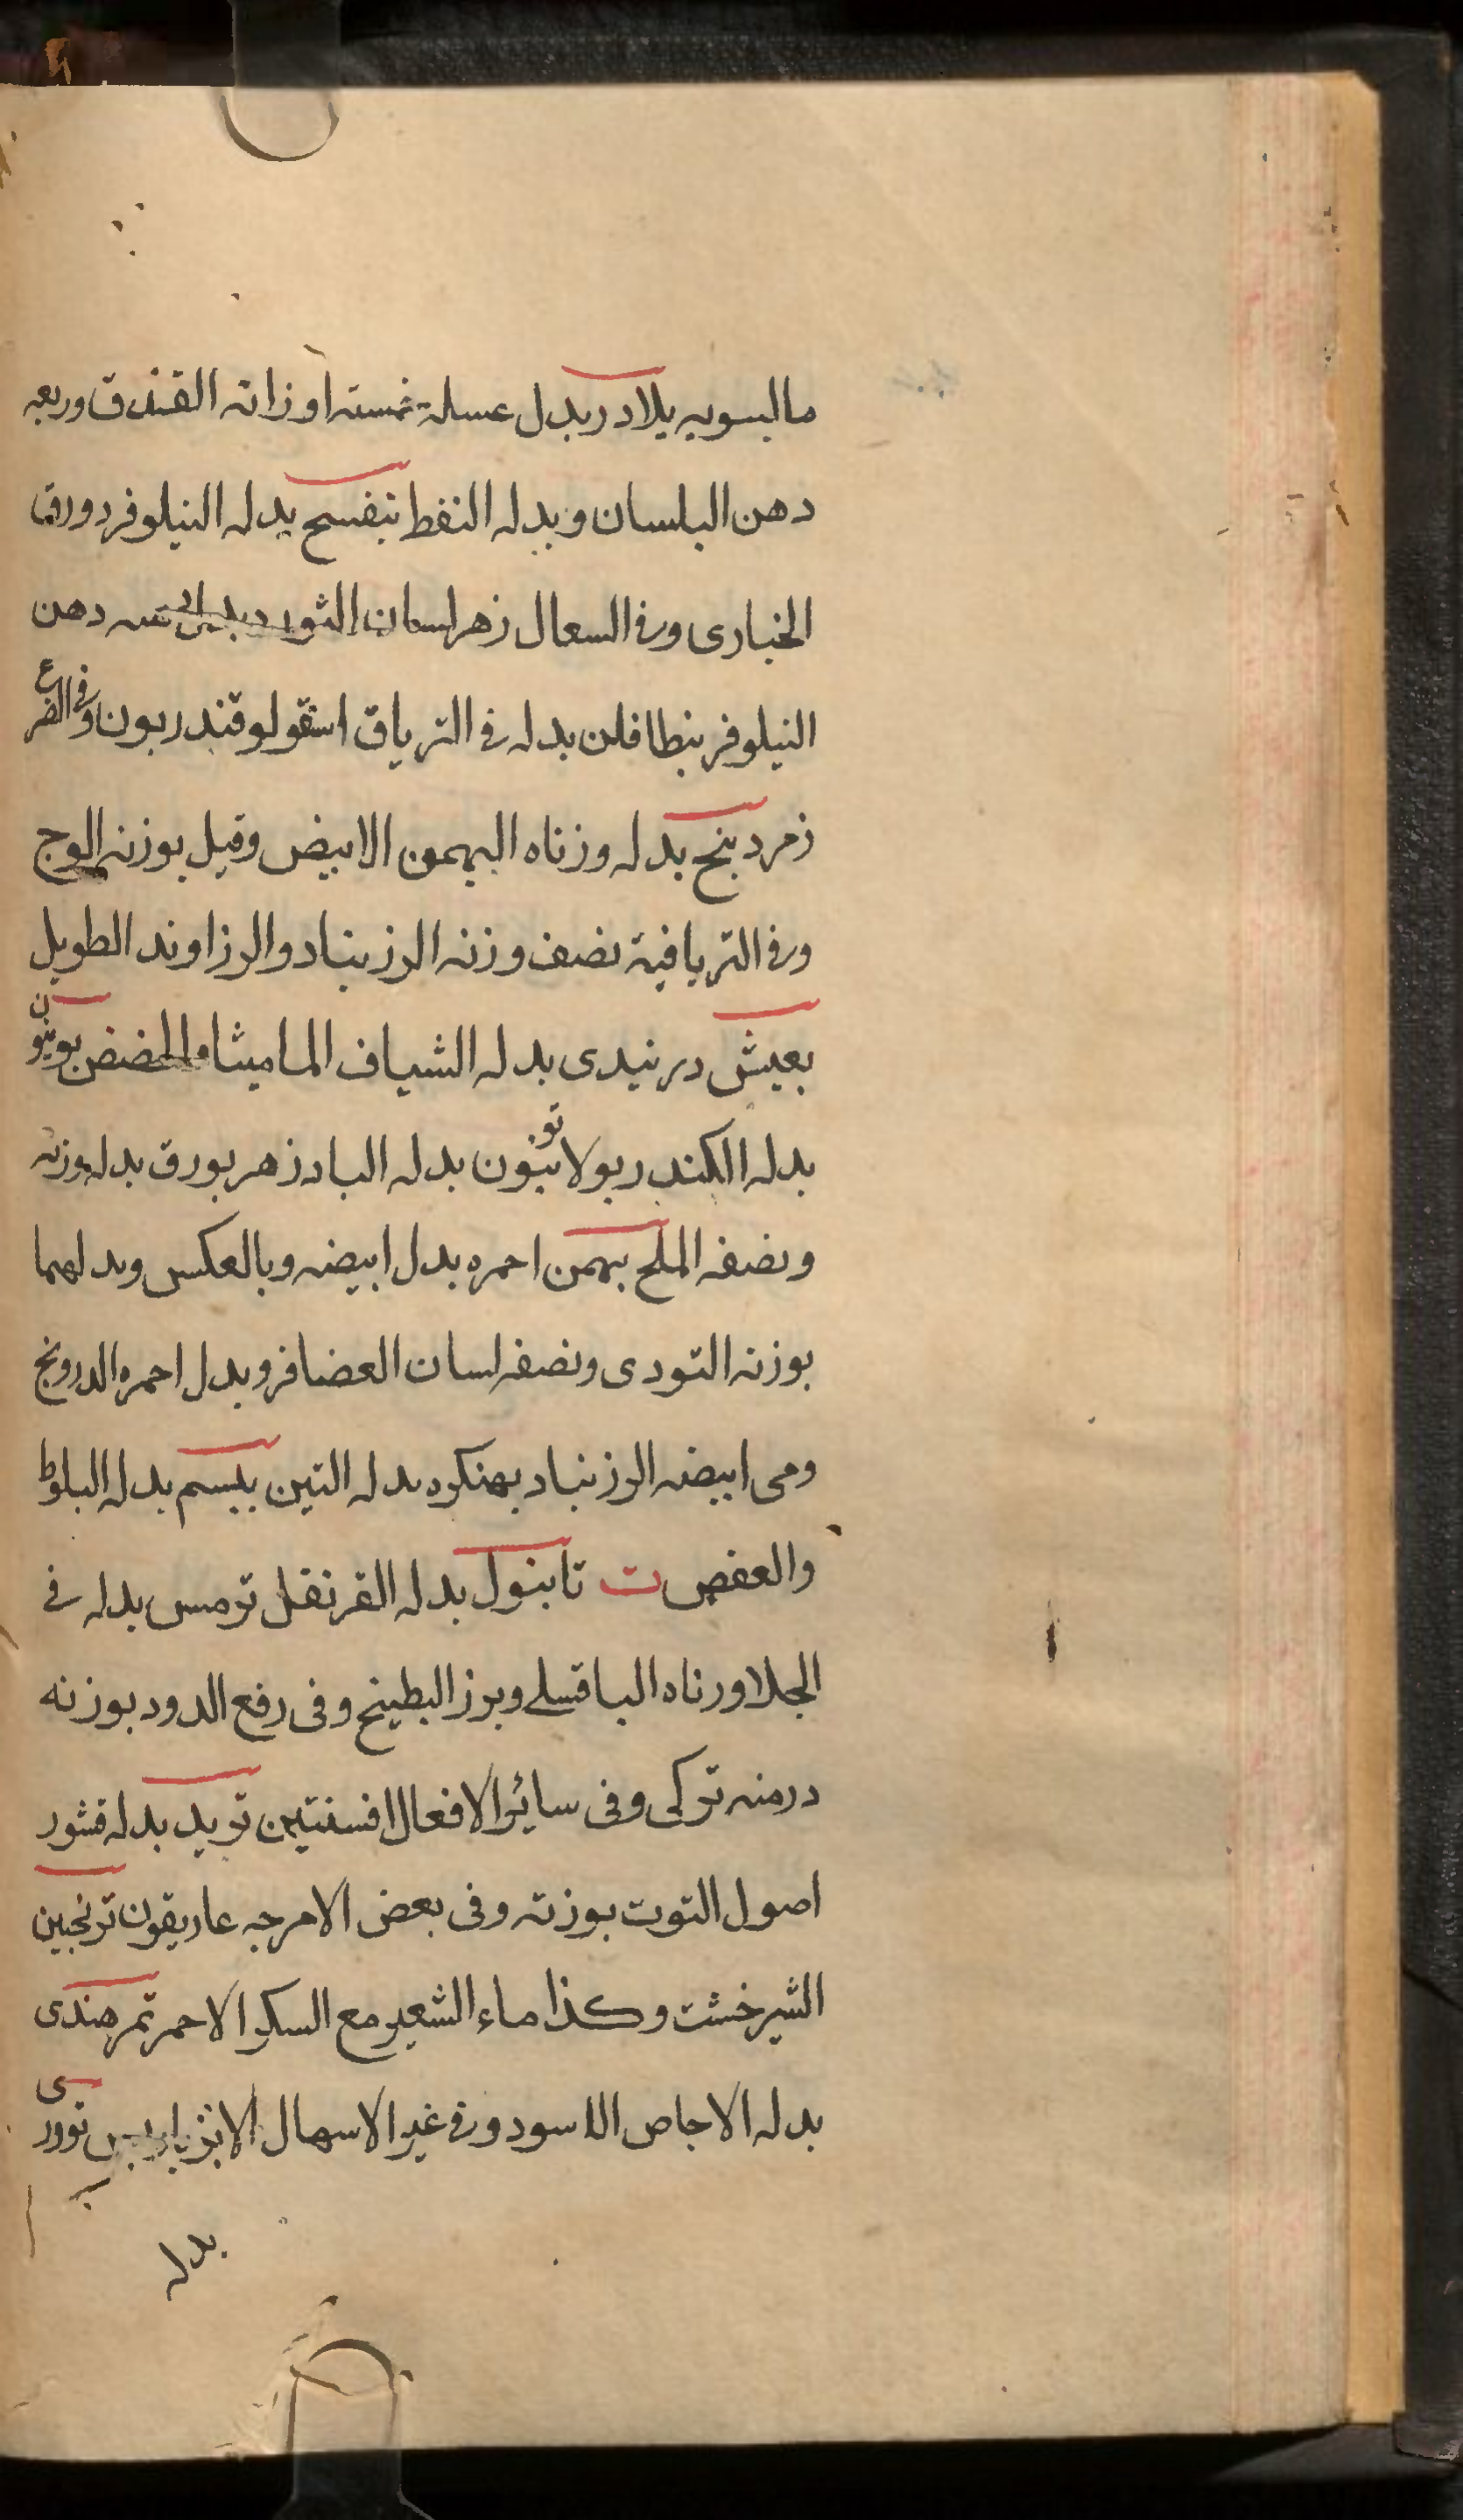 مالبسوبه بلادر بدل عسله خمسته اوزانه الفندق وربعه
دهن البلسان وبدله النفط بنفسج بدله النيلوفر وورق
الخبازى وفى السعال زهر لسان الثور دهن
النيلوفر بنطافلن بدله فى الترياق اسقولوقندريون وفى الصرع
زمردبنج بدله وزناه البهمن الابيض وقيل بوزنه الوج
وفى الترياقية نصف وزنه الرزنباد والرزاوند الطويل
بعيش درنيدى بدله الشياف الماميثا والحضض بوينون
بدله الكندر بولاتنون بدله البادزهر بورق بدله وزنه
ونصفه الملح بهمن احمره بدل ابيضه وبالعكس وبدلهما
بوزنه التودى ونصفه لسان العضافر وبدل احمره الدرونج
ومى ابيضه الرزنباد بهنكره بدله التين بيسم بدله البلوط
والعفص ت تابنول بدله القرنفل ترمس بدله فى
الجلا ورناه الباقلى وبرز البطيخ وفى رفع الدود بوزنه
درمنه تركى وفى سائر الافعال افسنتين تربد بدله قشور
اصول التوت بوزنه وفى بعض الامرجه عاريقون ترنجبين
الشيرخشت وكذا ماء الشعير مع السكر الاحمر تمر هندى
بدله الاجاص الاسود وفى غير الاسهال الانبرباريس تودرى
بدله